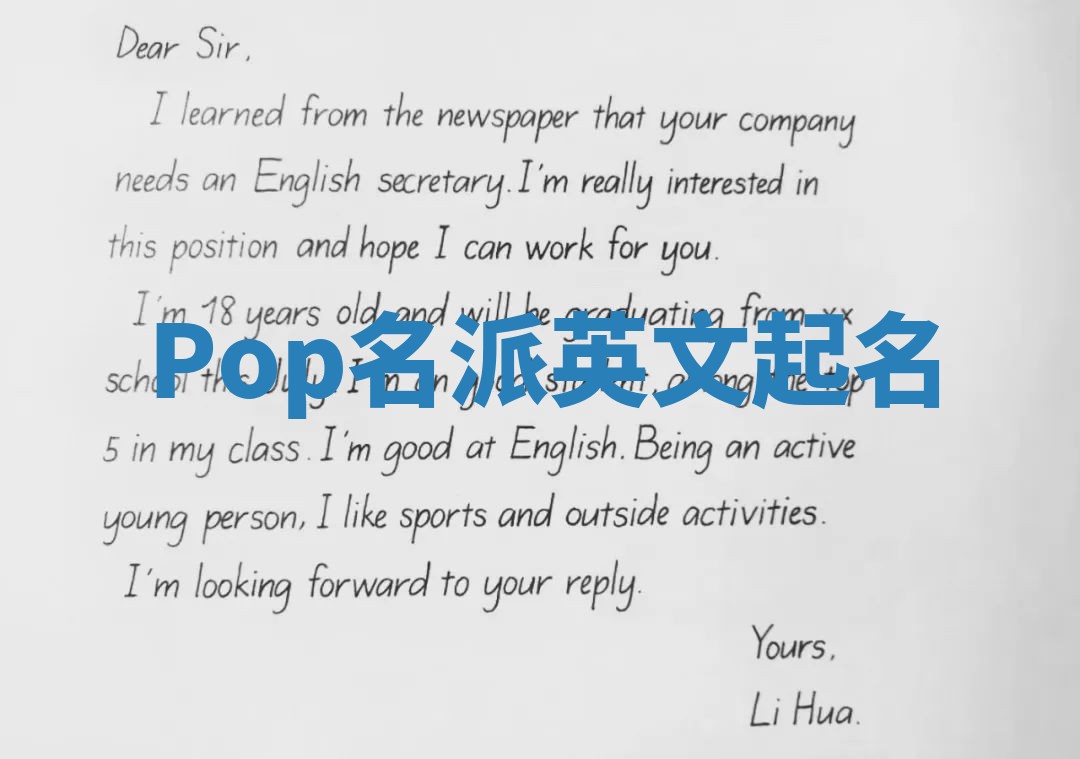 Dear Sir,
I learned from the newspaper that your company
needs an English secretary. I'm really interested in
this position and hope I can work for you.
I'm 18 years old and will be graduating from xx
Pop名派英文起名
school this July. I'm an good student, among the top
5 in my class. I'm good at English. Being an active
young person, I like sports and outside activities.
I'm looking forward to your reply.
Yours,
Li Hua.